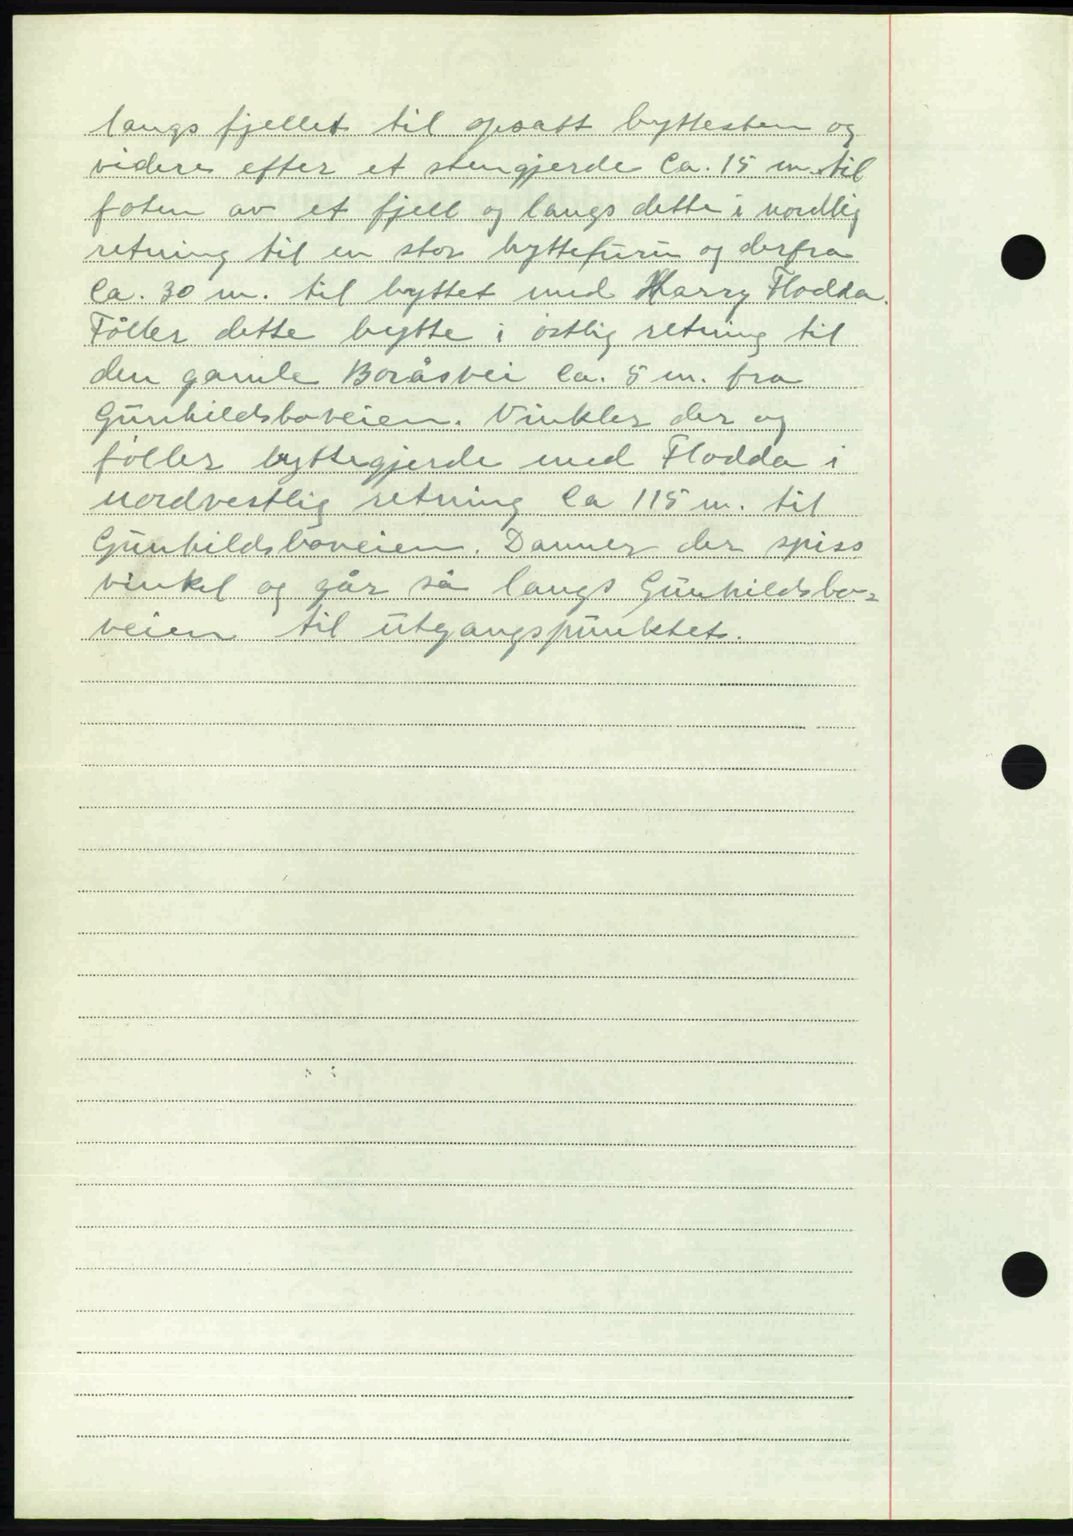 langs fjellet til opsatt byttesten og
videre efter et stengjerde Ca. 15 m. til
foten av et fjell og langs dette i nordlig
retning til en stor byttefuru og derfra
Ca. 30 m. til byttet med Harry Flodda.
Føller dette bytte i östlig retning til
den gamle Boråsvei Ca. 5 m. fra
Gunhildsboveien. Vinkler der og
føller byttegjerde med Flodda i
nordvestlig retning Ca 115 m. til
Gunhildsboveien. Danner der spiss
vinkel og går så langs Gunhildsbo-
veien til utgangspunktet.